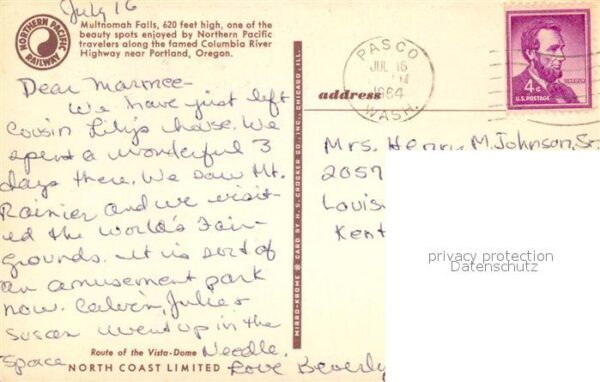 July 16
NORTHERN PACIFIC
RAILWAY
Multnomah Falls, 620 feet high, one of the
beauty spots enjoyed by Northern Pacific
travelers along the famed Columbia River
Highway near Portland, Oregon.
Dear Marmee-
We have just left
Cousin Lily's house. We
spent a wonderful 3
days there. We saw Mt.
Rainier and we visit-
ed the World's Fair-
grounds. It is sort of
an amusement park
now. Calvin, Julie &
Susan went up in the
Space Needle.
Love Beverly
Route of the Vista-Dome
NORTH COAST LIMITED
MIRRO-KROME ® CARD BY H. S. CROCKER CO., INC., CHICAGO, ILL.
PASCO
JUL 16
PM
1964
WASH.
4¢
U.S. POSTAGE
address
Mrs. Henry M. Johnson, Sr.
2057
Louis
Kent
privacy protection
Datenschutz